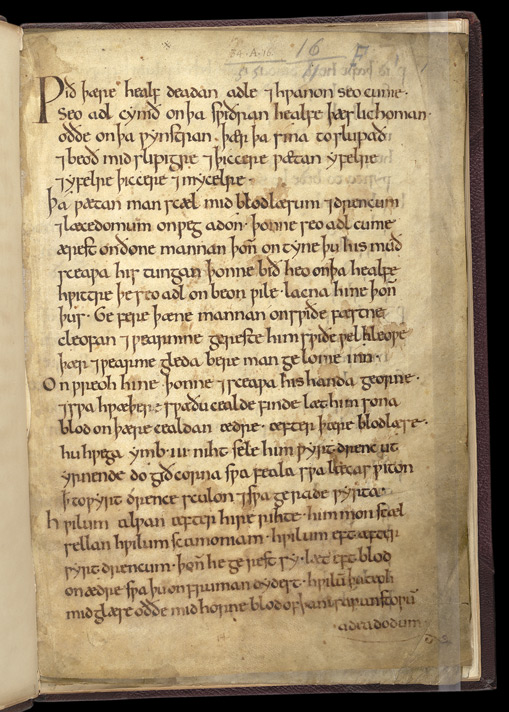 34.A.16. 16
Ƿið þære healf deadan adle ⁊ hƿanon seo cume·
Seo adl cymð on þa sƿiðran healfe þæs lichoman·
oððe on þa ƿynstran· þær þa sina toslupað
⁊ beoð mid slipigre ⁊ þiccere ƿætan yfelre
⁊ yfelre þiccere ⁊ mycelre·
Þa ƿætan man sceal mid blodlæsum ⁊ drencum
⁊ læcedomum onƿeg adon· þonne seo adl cume
ærest on ðone mannan þoñ ontyne þu his muð
sceaƿa his tungan þonne bið heo on þa healfe
hƿittre þe seo adl on beon ƿile· lacna hine þoñ
þus· Ge fere þæne mannan on sƿiðe fæstne
cleofan ⁊ ƿearmne gereste him sƿiðe ƿel hleoƿe
þær ⁊ ƿearme gleda bere man gelome inn·
Onƿreoh hine þonne ⁊ sceaƿa his handa georne·
⁊ sƿa hƿæþer sƿa ðu cealde finde læt him sona
blod on þære cealdan ædre· æfter þære blodlæse·
hu hƿega ymb·iii· niht sele him ƿyrt drenc ut
yrnende do god corna sƿa feala sƿa læcas ƿiton
þ to ƿyrt drence sculon ⁊ sƿa gerade ƿyrta·
hƿilum alƿan æfter hire rihte· him mon sceal
sellan hƿilum scamoniam· hƿilum eft æfter
ƿyrt drencum· þoñ he gerest sy· læt eft blod
on ædre sƿa þu on fruman dydest· hƿilū þu teoh
mid glære oððe mid horne blod of þam saran stoƿū
adeadodum·